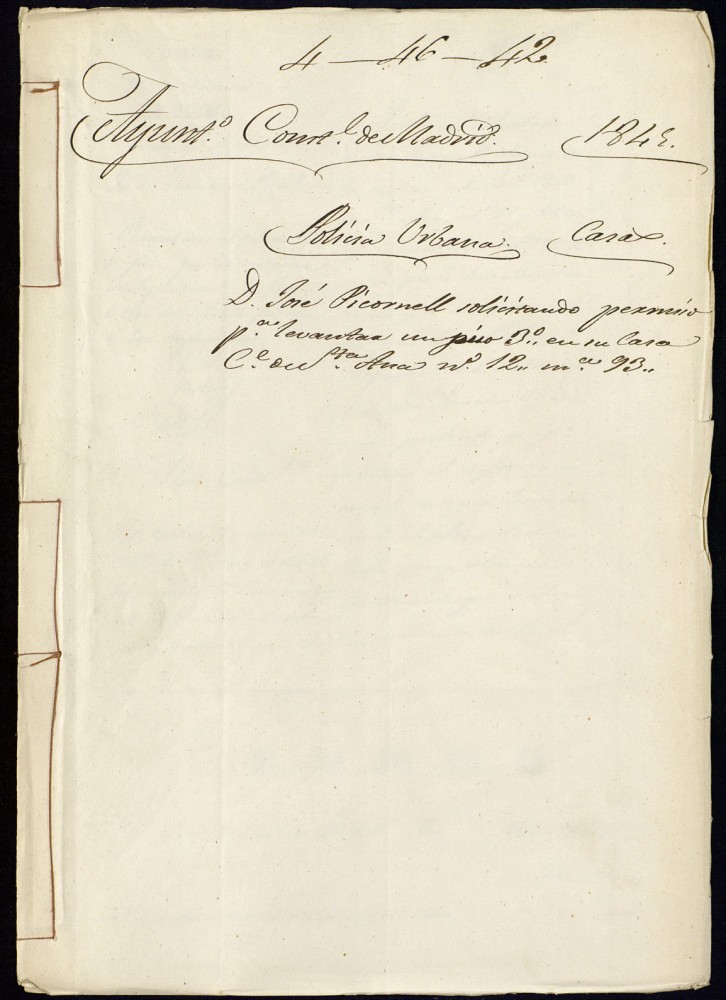 4 — 46 — 42
Ayunt.º Const.l de Madrid. 1843.
Policia Urbana. Casas.
D. José Picornell solicitando permiso
p.ª levantar un piso 3.º en su Casa
C.e de S.ta Ana nº. 12.. m.ª 93..